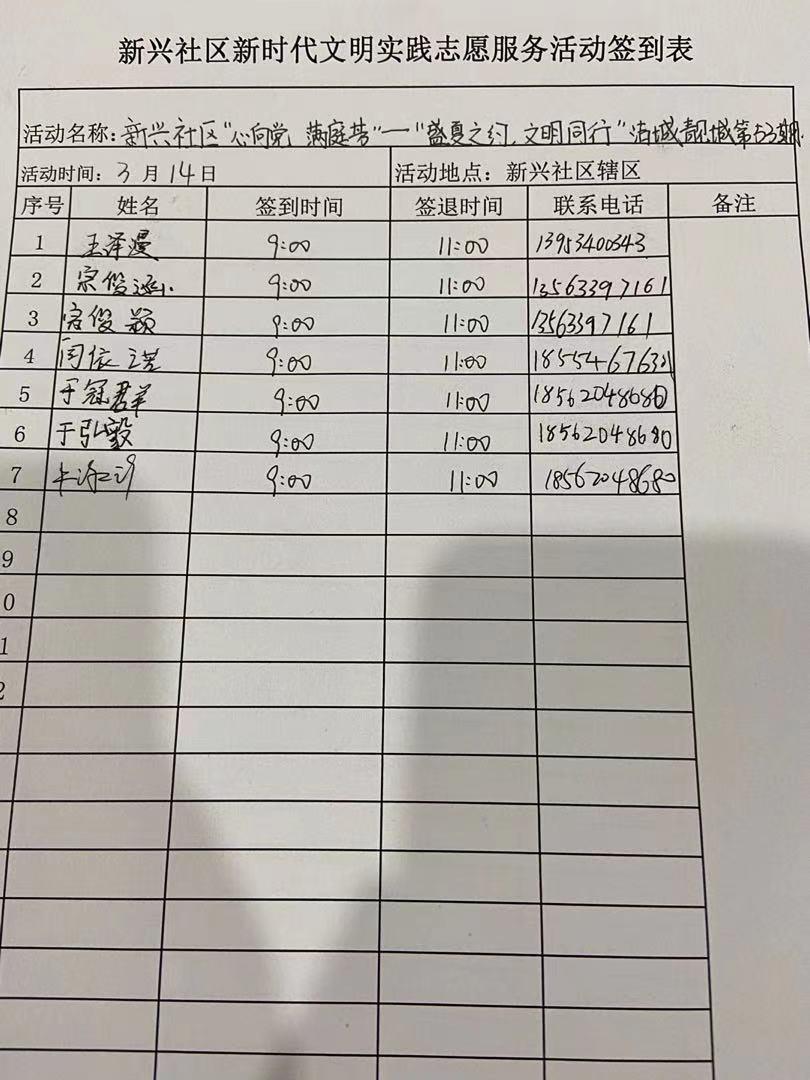 新兴社区新时代文明实践志愿服务活动签到表
活动名称：新兴社区“心向党 满庭芳”一“盛夏之约，文明同行”洁城靓城第53期.
活动时间：3月14日 活动地点：新兴社区辖区
序号 姓名 签到时间 签退时间 联系电话 备注
1 王泽漫 9:00 11:00 13953400343
2 宗俊 9:00 11:00 13563397161
3 宗俊颖 9:00 11:00 13563397161
4 闫依诺 9:00 11:00
5 于冠群 9:00 11:00 18562048680
6 于弘毅 9:00 11:00 18562048680
7 9:00 11:00 18562048680
8
9
0
1
2